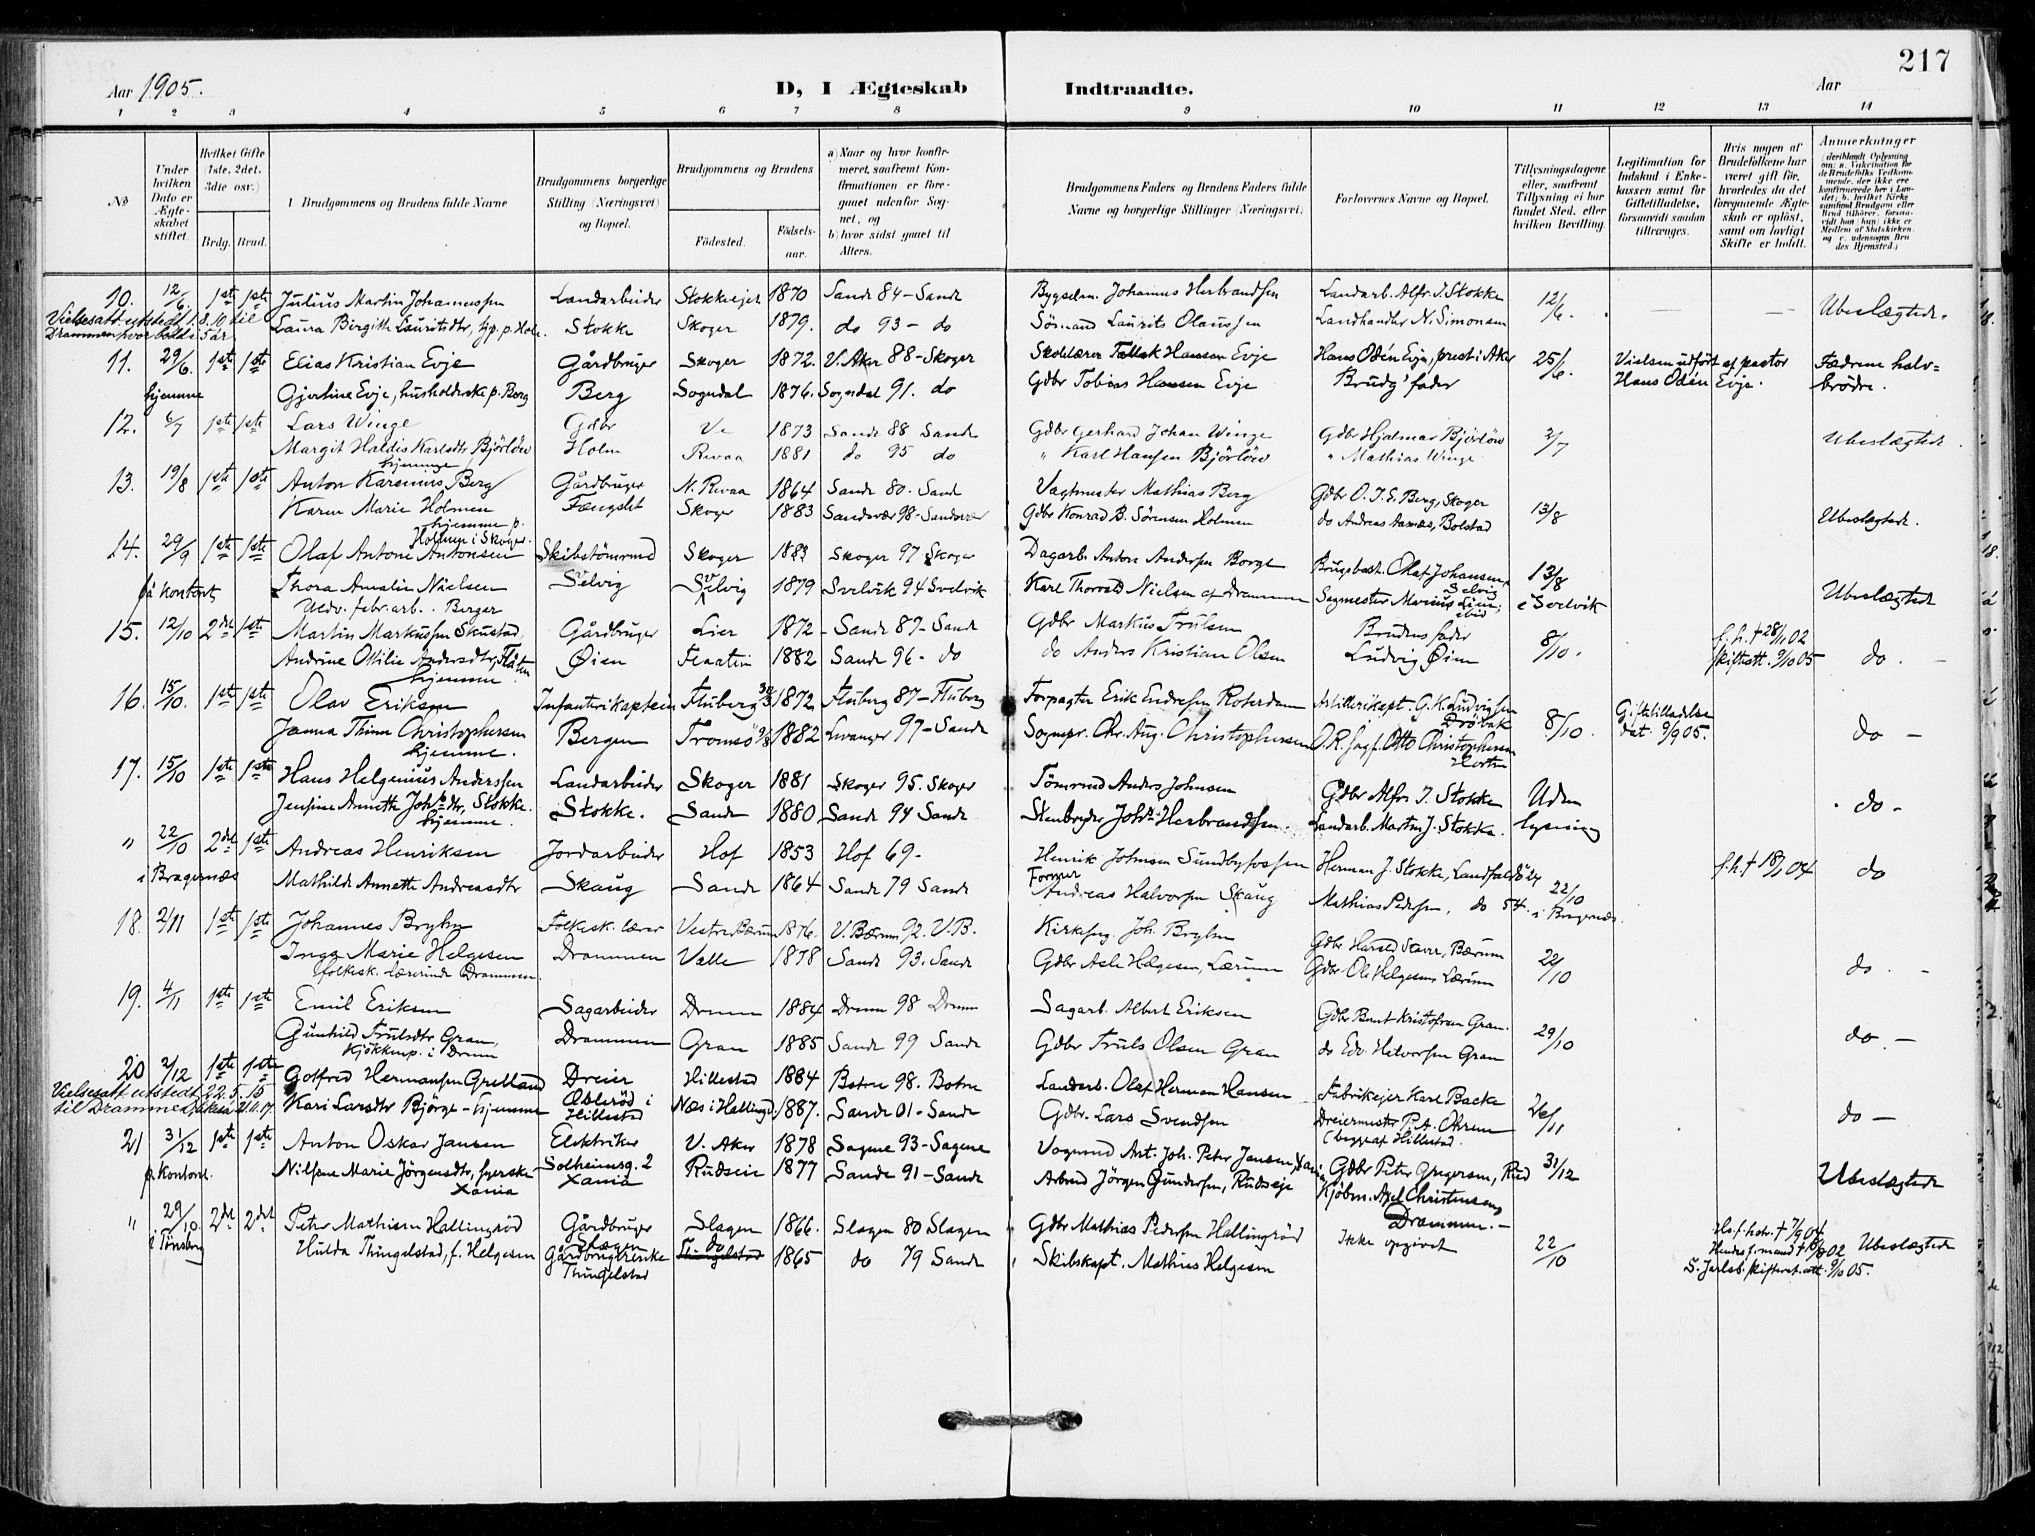 217
Aar 1905. D, I Ægteskab Indtraadte. Aar
1 2 3 4 5 6 7 8 9 10 11 12 13 14
No
Under hvilken Dato er Ægteskabet stiftet.
Hvilket Gifte (1ste, 2det, 3die osv.)
Brdg. Brud.
1 Brudgommens og Brudens fulde Navne
Brudgommens borgerlige Stilling (Næringsvei) og Bopæl.
Brudgommens og Brudens
Fødested. Fødselsaar.
a) Naar og hvor konfirmeret, saafremt Konfirmationen er foregaaet udenfor Sognet, og
b) hvor sidst gaaet til Alters.
Brudgommens Faders og Brudens Faders fulde Navne og borgerlige Stillinger (Næringsvei)
Forlovernes Navne og Bopæl.
Tillysningsdagene eller, saafremt Tillysning ei har fundet Sted, efter hvilken Bevilling.
Legitimation for Indskud i Enkekassen samt for Giftetilladelse, forsaavidt saadan tiltrænges.
Hvis nogen af Brudefolkene har været gift før, hvorledes da det foregaaende Ægteskab er opløst, samt om lovligt Skifte er holdt.
Anmærkninger
10. 12/6. 1ste 1ste Julius Martin Johannessen Landarbeider Stokkeejet 1870 Sande 84 - Sande Bygselm. Johannes Herbrandsen Landarb. Alfr. J. Stokke 12/6. Ubeslægtede.
Laura Birgith Lauritsdtr, Stokke Skoger 1879. do 93 - do Sømand Laurits Olaussen Landhandler N. Simonsen
11. 29/6. 1ste 1ste Elias Kristian Evje Gårdbruger Skoger 1872. V. Aker 88 - Skoger Skolelærer Tallak Hansen Evje Hans Odén Evje, prest i Aker 25/6. Vielsen udført af pastor Fædrene halv=
hjemme Gjertine Evje, husholderske p. Berg Berg Sogndal 1876. Sogndal 91. do Gdbr Tobias Hansen Evje Brudg' fader Hans Odén Evje. brödre.
12. 6/7 1ste 1ste Lars Winge Gdbr Ve 1873 Sande 88 Sande Gdbr Gerhard Johan Winge Gdbr Hjalmar Björlöw 2/7 Ubeslægtede.
Margit Haldis Karlsdtr Björlöw Holm Revaa 1881 do 95 do " Karl Hansen Björlöw " Mathias Winge
hjemme
13. 19/8 1ste 1ste Anton Karenius Berg Gårdbruger N. Revaa 1864 Sande 80. Sande Vagtmester Mathias Berg Gdbr O. J. E. Berg, Skoger 13/8 Ubeslægtede.
Karen Marie Holmen Fængslet Skoger 1883 Sandsvær 98 - Sandsvær Gdbr Konrad B. Sörensen Holmen do Andreas, Bolstad
hjemme p. Holmen i Skoger
14. 29/9 1ste 1ste Olaf Antoni Antonsen Skibstömrmd Skoger 1883 Skoger 97 Skoger Dagarb. Anton Andersen Borge Brugsbest. Olaf Johansen, Selvig 13/8 Ubeslægtede
på kontoret Thora Amalie Nielsen Selvig Selvig 1879 Svelvik 94 Svelvik Karl Thorvald Nielsen af Drammen Sagmester Marius Lien, ibid i Svelvik
Uedv. febr. arb. Berger
15. 12/10 2det 1ste Martin Markussen Skustad, Gårdbruger Lier 1872 - Sande 87 - Sande Gdbr Markus Trulsen Brudens fader 8/10. f. h. † 28/1 02
Andrine Otilie Andersdtr, Flåtin Øien Flaatin 1882 Sande 96 - do do Anders Kristian Olsen Ludvig Øien skifteatt. 9/10 05 do. -
hjemme.
16. 15/10. 1ste 1ste Olav Eriksen Infanterikaptein Fluberg 30/3 1872 Fluberg 87 - Fluberg Forpagter Erik Endresen Roterdam Artillerikapt. G. K. Ludvigsen Drøbak 8/10. Giftetilladelse
Janna Thinn Christophersen Bergen Tromsö 9/8 1882 Levanger 97 - Sande Sognepr. Chr. Aug. Christophersen O.R. sagf. Otto Christophersen Horten dat. 9/9 05. do -
hjemme.
17. 15/10 1ste 1ste Hans Helgenius Anderssen Landarbeider Skoger 1881 Skoger 95. Skoger Tömrmd Anders Johnsen Gdbr Alfr. J. Stokke Uden do -
Jensine Annette Johsdtr, Stokke. Stokke. Sande 1880 Sande 94 Sande Stenbryder Johs Herbrandsen. Landarb. Martin J. Stokke. lysning
hjemme.
" 22/10 2det 1ste Andreas Henriksen Jordarbeider Hof 1853 Hof 69 - Henrik Johnsen Sundbyfossen Herman J. Stokke, Landfaldö 24 22/10 f. h. † 18/1 04 do
i Bragernæs Mathilde Annette Andreasdtr Skaug Sande 1864 Sande 79 Sande Former Andreas Halvorsen Skaug Mathias Pedersen, do 54. i Bragernæs
18. 2/11 1ste 1ste Johannes Bryhn Folkesk. lærer Vestre Bærum 1876. V. Bærum 92. V.B. Kirkesng. Joh. Bryhn Gdbr Harald Staver, Bærum 22/10 do. -
Inga Marie Helgesen Drammen Valle 1878 Sande 93. Sande Gdbr Asle Helgesen, Lærum Gdbr. Ole Helgesen, Lærum
folkesk. lærerinde Drammen.
19. 4/11 1ste 1ste Emil Eriksen Sagarbeider Drmn 1884 Drmn 98 Drmn Sagarb. Albert Eriksen Gdbr Bernt Kristofersen Gran. 29/10 do. -
Gunhild Trulsdtr Gran, Drammen Gran 1885 Sande 99 Sande Gdbr Truls Olsen Gran do Edv. Halvorsen Gran
Kjökkenp. i Drmn
20 2/12 1ste 1ste Gotfred Hermansen Grelland Dreier Hillestad 1884 Botne 98. Botne Landarb. Olaf Herman Hansen Fabrikejer Karl Backe 26/11 do -
Kari Larsdtr Björge - hjemme Odderöd i Hillestad Næs i Hallingd. 1887. Sande 01 - Sande Gdbr. Lars Svendsen Dreiermester P. A. Ohren (begge af Hillestad.
21 31/12 1ste 1ste Anton Oskar Jansen Elektriker V. Aker 1878 Sagene 93 - Sagene Vognmd Ant. Joh. Peter Jansen, Xania Gdbr Peter Jörgensen, Rud 31/12 Ubeslægtede
på kontoret. Nilsine Marie Jörgensdtr, syerske Xania Solheimsg. 2 Xania Rudseie 1877 Sande 91 - Sande Arbmd Jörgen Gundersen, Rudseje Kjöbm. Axel Christensen, Drammen. -
" 29/10. 2det 2det Peter Mathisen Hallingröd Gårdbruger Slagen Slagen 1866. Slagen 80 Slagen Gdbr Mathias Pedersen Hallingröd Ikke opgivet 22/10 Hs. f. hstr. † 7/9 04
i Tönsberg Hulda Thingelstad, f. Helgesen Gårdbrugerenke Thingelstad do 1865 do 79 Sande Skibskapt. Mathias Helgesen Hendes f. mand † 02 Ubeslægtede
S. Jarlsb. skifteret. att. 9/10 05.
Vielsesatt. utstedt 1.8.40 til
Drammen
Vielsesatt utstedt 22.5.15
til Drammen